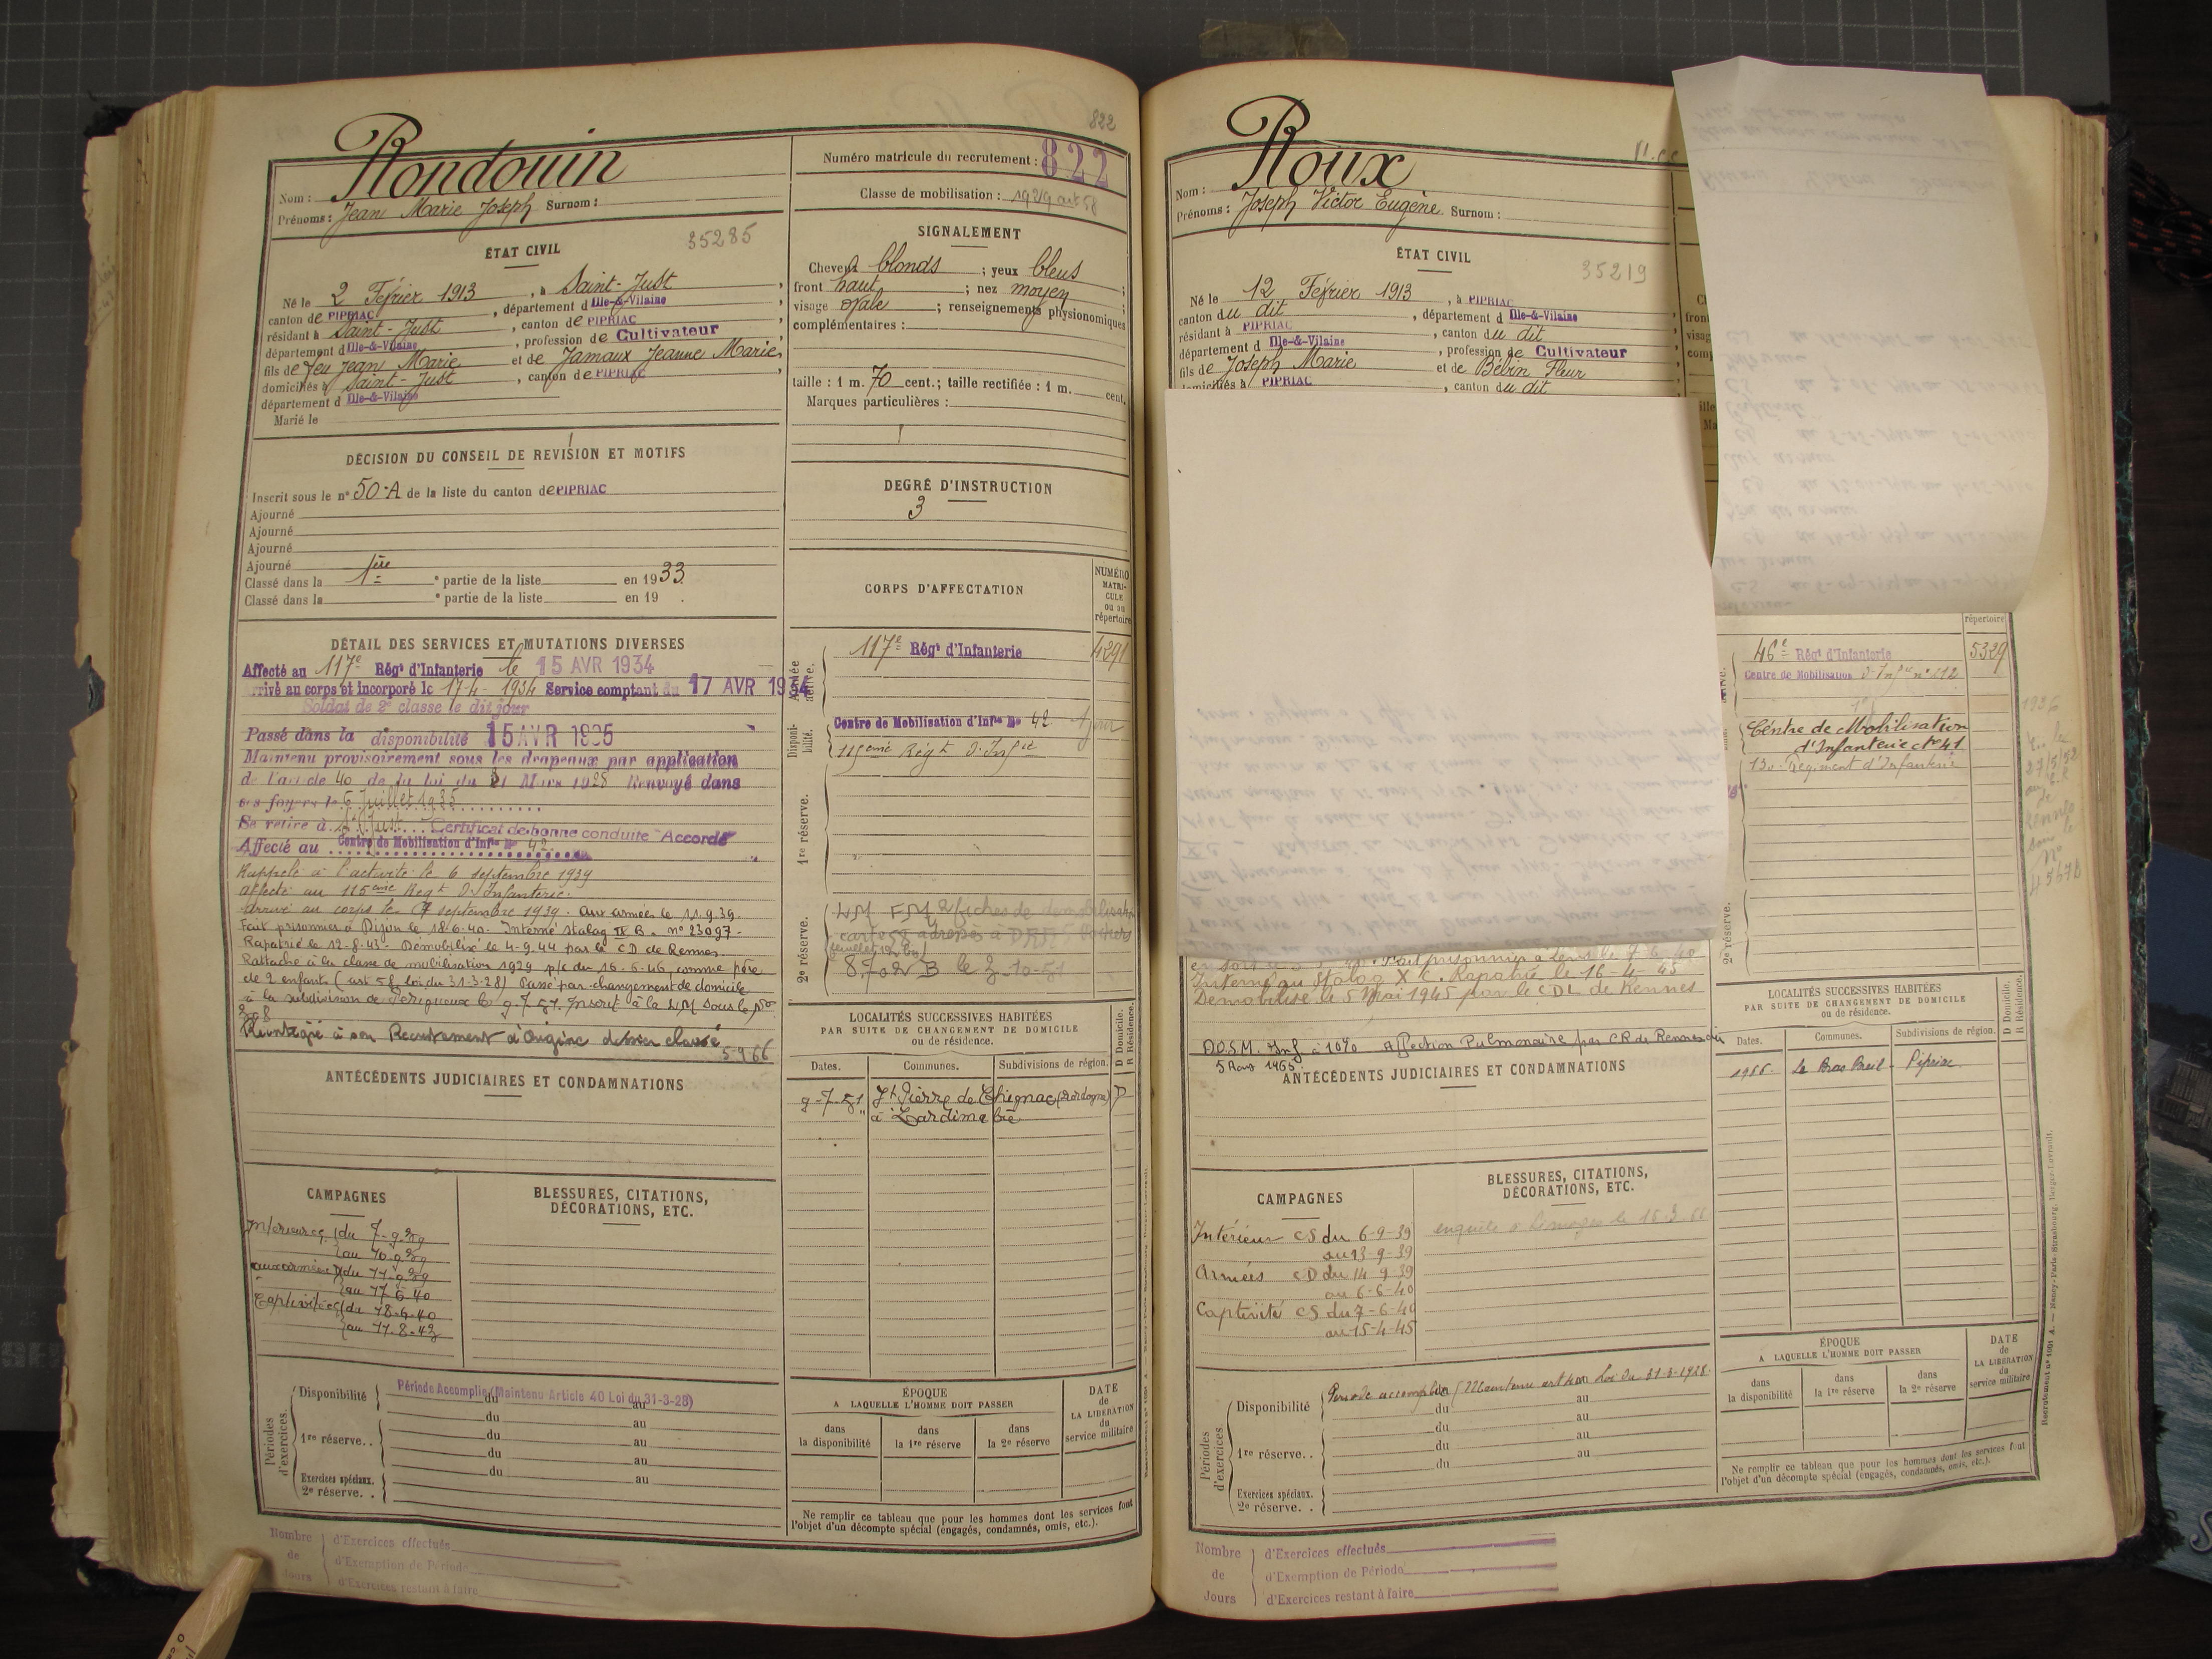 822
Rondouin
Nom :
Prénoms : Jean Marie Joseph Surnom :
Numéro matricule du recrutement : 822
Classe de mobilisation : 1929 art 58
ÉTAT CIVIL
35285
Né le 2 Février 1913, à Saint-Just,
canton de PIPRIAC, département d Ille-&-Vilaine
résidant à Saint-Just, canton de PIPRIAC
département d Ille-&-Vilaine, profession de Cultivateur
fils de feu Jean Marie et de Jamaux Jeanne Marie,
domiciliés à Saint-Just, canton de PIPRIAC
département d Ille-&-Vilaine
Marié le
SIGNALEMENT
Cheveux blonds ; yeux bleus ;
front haut ; nez moyen ;
visage ovale ; renseignements physionomiques
complémentaires :
taille : 1 m. 70 cent. ; taille rectifiée : 1 m. cent.
Marques particulières :
DÉCISION DU CONSEIL DE REVISION ET MOTIFS
Inscrit sous le n° 50-A de la liste du canton de PIPRIAC
Ajourné
Ajourné
Ajourné
Ajourné
Classé dans la 1ère partie de la liste en 1933.
Classé dans la e partie de la liste en 19 .
DEGRÉ D'INSTRUCTION
3
DÉTAIL DES SERVICES ET MUTATIONS DIVERSES
Affecté au 117e Régt d'Infanterie le 15 AVR 1934
rrivé au corps et incorporé le 17-4-1934 Service comptant du 17 AVR 1934
Soldat de 2e classe le dit jour
Passé dans la disponibilité 15 AVR 1935
Maintenu provisoirement sous les drapeaux par application
de l'article 40 de la loi du 31 Mars 1928 Renvoyé dans
ses foyers le 6 Juillet 1935
Se retire à St Just. Certificat de bonne conduite "Accordé"
Affecté au Centre de Mobilisation d'Infie N° 42
Rappelé à l'activité le 6 septembre 1939
affecté au 115ème Régt d'Infanterie.
Arrivé au corps le 7 septembre 1939. aux armées le 11.9.39.
Fait prisonnier à Dijon le 18.6.40. Interné Stalag IV B. n° 23097.
Rapatrié le 12-8-43. Démobilisé le 4-9-44 par le CD de Rennes.
Rattaché à la classe de mobilisation 1929 p/c du 16.6.46, comme père
de 2 enfants (art 58 loi du 31-3-28) Passé par changement de domicile
à la subdivision de Périgueux le 9.7.51. Inscrit à la LM sous le n°
Réintégré à son Recrutement d'Origine dossier classé
5-9 66
CORPS D'AFFECTATION
NUMÉRO MATRICULE ou au répertoire
Armée active.
117e Régt d'Infanterie 4291
Disponibilité.
Centre de Mobilisation d'Infie N° 42
115ème Régt d'Infie
1re réserve.
2e réserve.
8.702 B le 3-10-51
ANTÉCÉDENTS JUDICIAIRES ET CONDAMNATIONS
LOCALITÉS SUCCESSIVES HABITÉES
PAR SUITE DE CHANGEMENT DE DOMICILE
ou de résidence.
Dates. Communes. Subdivisions de région. D Domicile. R Résidence.
9-7-51 St Pierre de Chignac (Dordogne) D
à Lardimalie
CAMPAGNES
Intérieur CS du 7-9-39
au 10-9-39
aux armées CD du 11-9-39
au 17-6-40
Captivité CS du 18-6-40
au 11-8-43
BLESSURES, CITATIONS,
DÉCORATIONS, ETC.
Périodes d'exercices.
Disponibilité Période Accomplie (Maintenu Article 40 Loi du 31-3-28)
du au
du au
1re réserve. . du au
du au
du au
Exercices spéciaux.
2e réserve. .
ÉPOQUE
A LAQUELLE L'HOMME DOIT PASSER
dans la disponibilité
dans la 1re réserve
dans la 2e réserve
DATE de LA LIBÉRATION du service militaire
Ne remplir ce tableau que pour les hommes dont les services font
l'objet d'un décompte spécial (engagés, condamnés, omis, etc.).
Nombre de Jours
d'Exercices effectués
d'Exemption de Période
d'Exercices restant à faire
Roux
Nom :
Prénoms : Joseph Victor Eugène Surnom :
ÉTAT CIVIL
35219
Né le 12 Février 1913, à PIPRIAC
canton du dit, département d Ille-&-Vilaine
résidant à PIPRIAC, canton du dit
département d Ille-&-Vilaine, profession de Cultivateur
fils de Joseph Marie et de Bévin Fleur
domiciliés à PIPRIAC, canton du dit
répertoire
46e Régt d'Infanterie 5329
Centre de Mobilisation d'Infie n° 212
Centre de Mobilisation
d'Infanterie N° 41
130e Régiment d'Infanterie
2e réserve.
Fait prisonnier à Lens le 7-6-40
Interné au Stalag X C. Rapatrié le 16-4-45
Démobilisé le 5 Mai 1945 par le CDL de Rennes
D.O.S.M. Inf. à 10% Affection Pulmonaire par C.R. de Rennes du
5 Aout 1965.
ANTÉCÉDENTS JUDICIAIRES ET CONDAMNATIONS
LOCALITÉS SUCCESSIVES HABITÉES
PAR SUITE DE CHANGEMENT DE DOMICILE
ou de résidence.
Dates. Communes. Subdivisions de région. D Domicile. R Résidence.
1966. Le Bras Breil - Pipriac
CAMPAGNES
Intérieur CS du 6-9-39
au 13-9-39
Armées CD du 14-9-39
au 6-6-40
Captivité CS du 7-6-40
au 15-4-45
BLESSURES, CITATIONS,
DÉCORATIONS, ETC.
Périodes d'exercices.
Disponibilité Période accomplie (Maintenu art 40 Loi du 31-3-1928.
du au
du au
1re réserve. . du au
du au
du
Exercices spéciaux.
2e réserve. .
ÉPOQUE
A LAQUELLE L'HOMME DOIT PASSER
dans la disponibilité
dans la 1re réserve
dans la 2e réserve
DATE de LA LIBÉRATION du service militaire
Ne remplir ce tableau que pour les hommes dont les services font
l'objet d'un décompte spécial (engagés, condamnés, omis, etc.).
Nombre de Jours
d'Exercices effectués
d'Exemption de Période
d'Exercices restant à faire